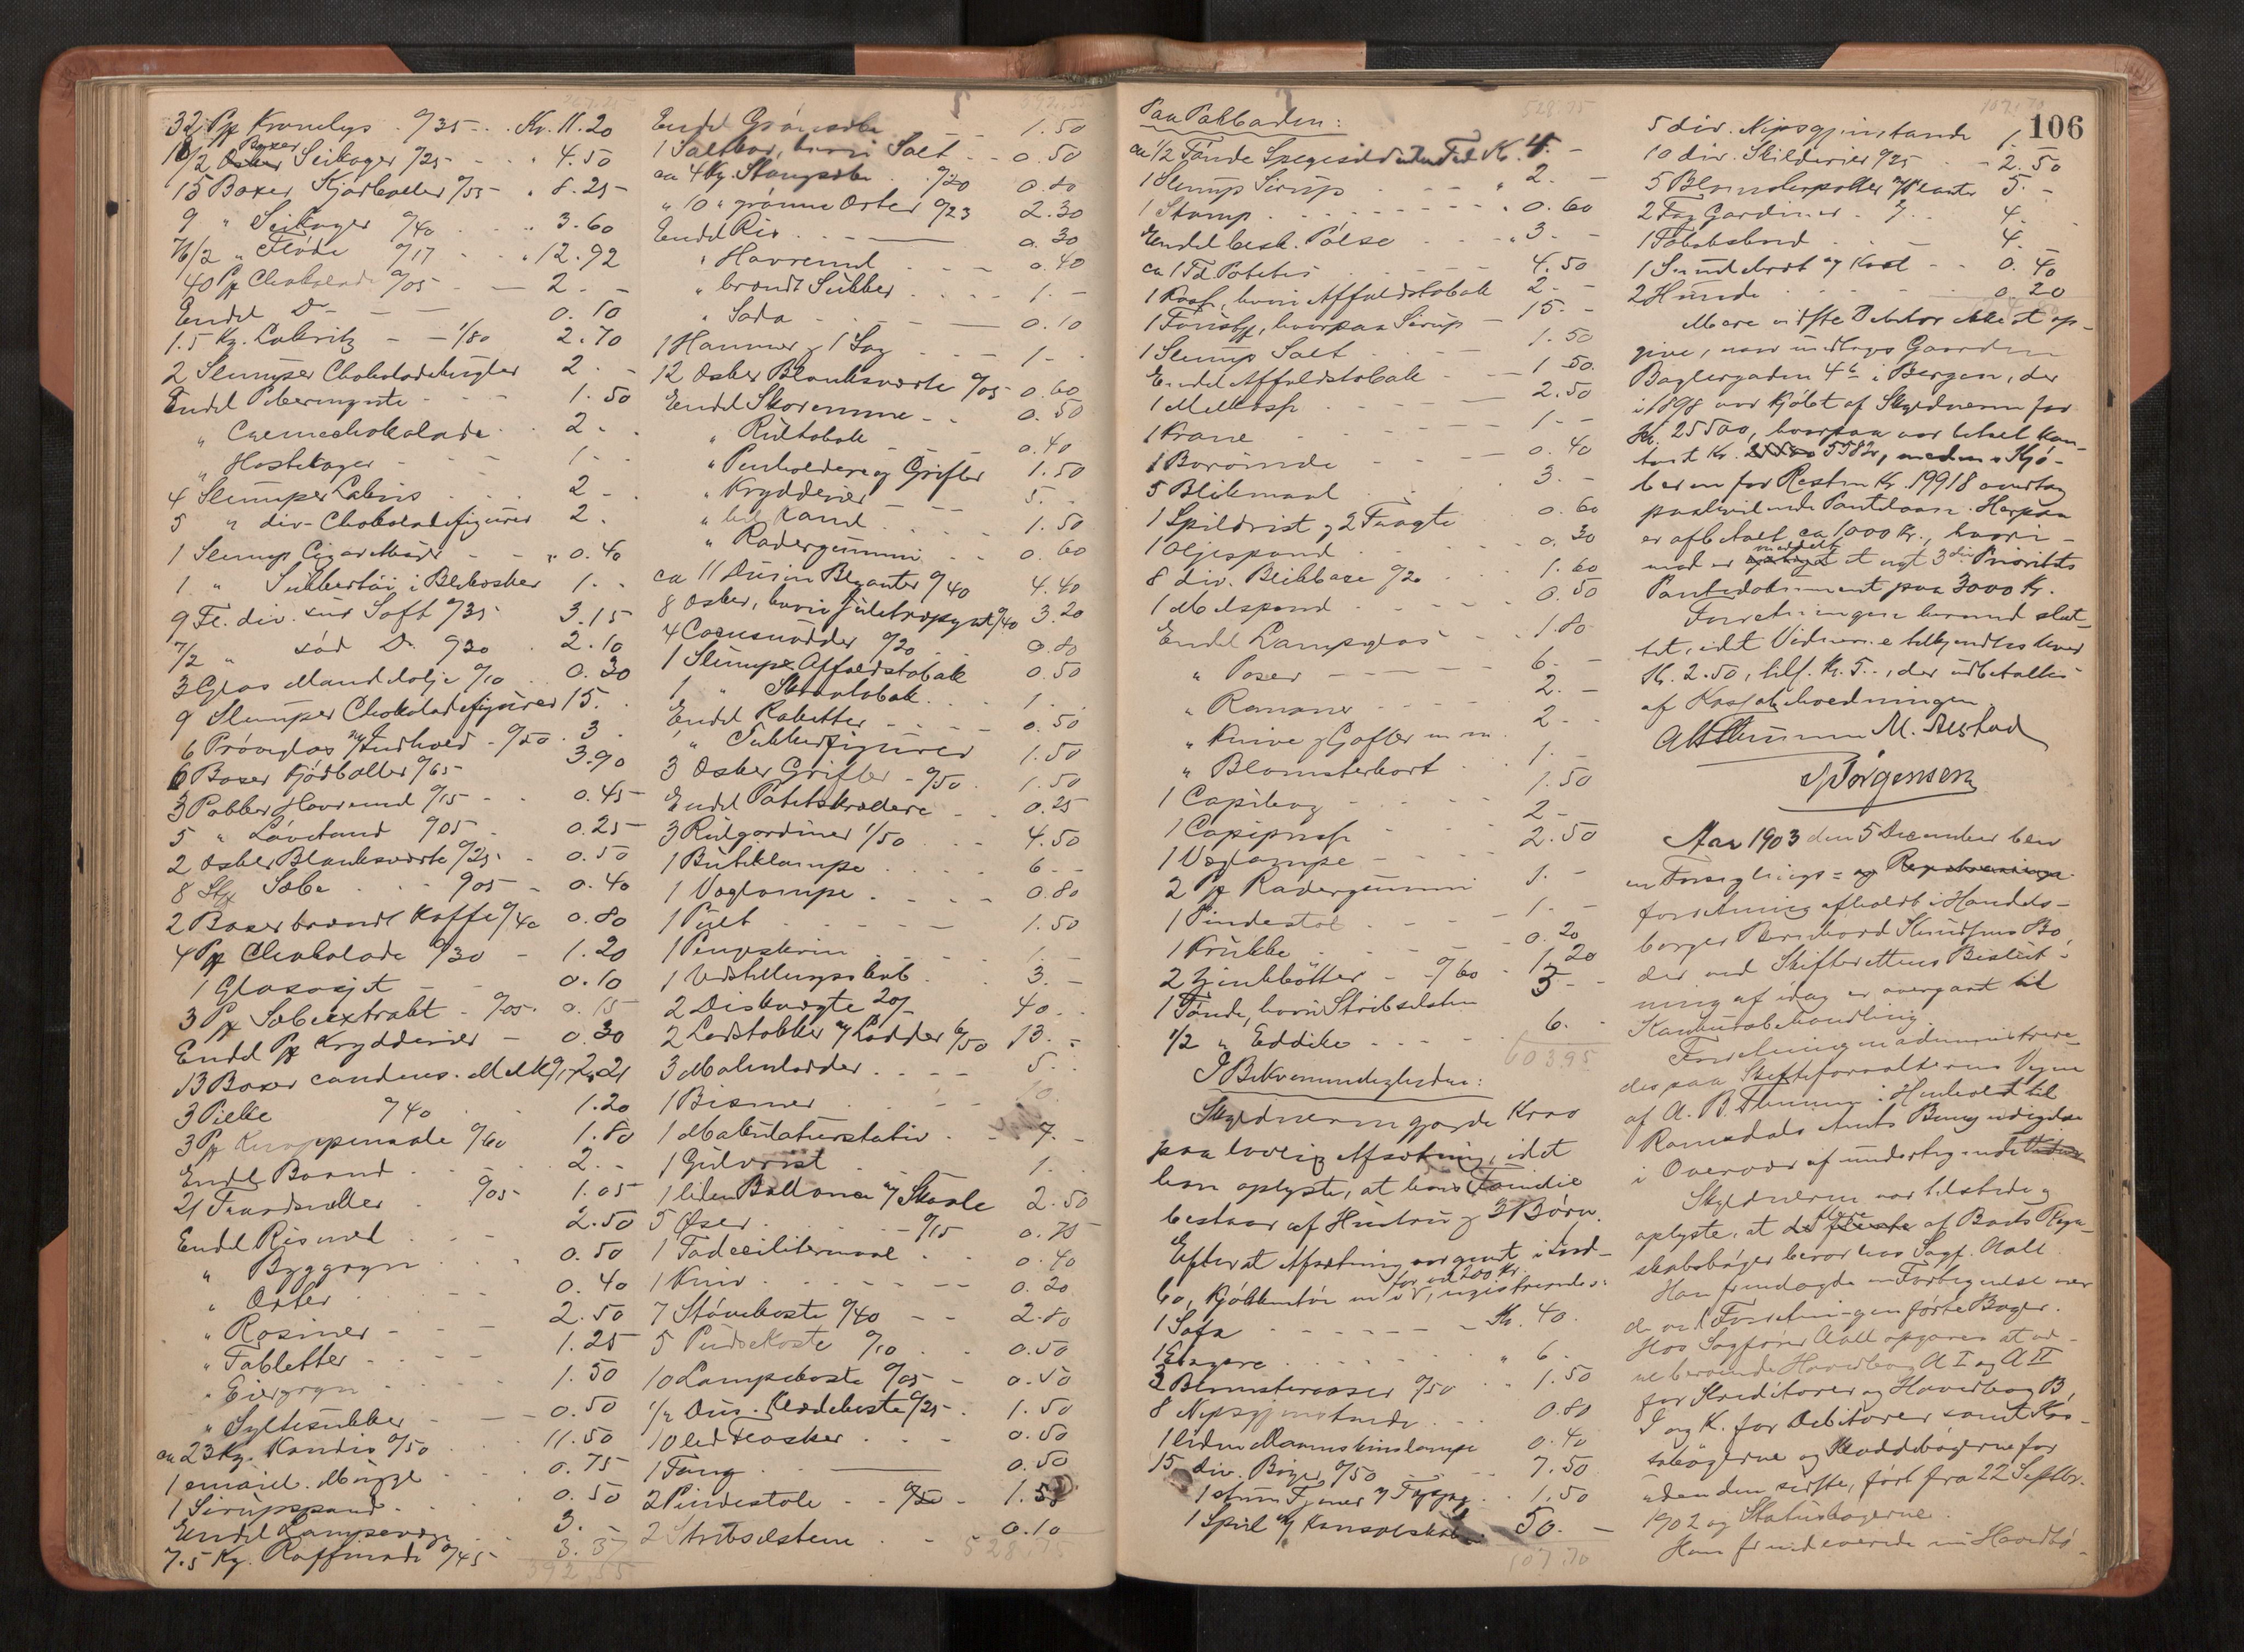 32 Pk Kronelys . %35 - . Kr. 11.20
18/2 Boxer Seikager %25 - - . 4.50
15 Boxer Kjødboller %55 . 8.25
9 " Seikager %40 . . 3.60
76/2 " Fløde %17 - . " 12.92
40 Pk Chokolade %05 - — 2. -
Endel Do - — 0.10
1.5 Kg. Lakritz - - 1/80 2.70
2 Slumper Chokoladekugler 2. -
Endel Pebermynte - - - 1.50
" Cremechokolade . . 2 - .
" Hostekager - - - 1 - .
4 Slumper Lakris . . . 2 - .
5 " div. Chokoladefigurer 2.
1 Slump Cigar - - " 0.40
1 " Sukkertøi i Blikæsker 1. -
9 Fl. div. sur Saft %35 3.15
7/2 " sød Do %30 . 2.10
3 Glas Mandelolje %10 . 0.30
9 Slumper Chokoladefigurer 15. .
6 Prøveglas m/Indhold - %50 . 3 .
6 Boxer Kjødboller %65 - 3.90
3 Pakker Havremel %15 - . 0.45
5 " Løvetand %05 . 0.25
2 Æsker Blanksværte %25 - 0.50
8 Stk Sæbe . . . %05 - 0.40
2 Boxer brændt Kaffe %40 0.80
4 Pk Chokolade %30 - 1.20
1 Glas - - 0.10
3 Pk Sæbeextrakt - %05 . 0.15
Endel Pk Krydderier - 0.30
13 Boxer condens. Melk %17 2.21
3 %40 . . 1.20
3 Pk Knappenaale %60 1.80
Endel Baand . . . . 2. -
21 Traadsneller . %05 - 1.05
Endel Rismel . . . 2.50
" Byggryn . . . 0.50
" Erter . . . . 0.40
" Rosiner - - - 2.50
" Tabletter . . . - 1.25
" Eiergryn . . . . 1.50
" Syltesukker - - - 0.50
ca 23 Kg. Kandis %50 . . . 11.50
1 emaill. Mugge . . . 0.75
1 Sirupsspand . . . . 0.50
Endel Lampevæge . . . 3. -
7.5 Kg. Raffinade %45 - 3.37
392,55
Endel Grønsæbe - - 1.50
1 Saltkar, hvori Salt - - 0.50
ca 4 Kg. Stangsæbe . . %20 0.80
" 10 " grønne Erter %23 2.30
Endel Ris . . - — 0.30
" Havremel . . - - 0.40
" brændt Sukker . . . . 1. -
" Soda . — . — 0.10
1 Hammer og 1 Sag . . - - 1 - .
12 Æsker Blanksværte %05 - 0.60
Endel Skoremme - . 0.50
" Rultobak . . . 0.40
" Penholdere og Grifter 1.50
" Krydderier . . . 5. -
" hel Kanel - . . . 1.50
" Radergummi . . - 0.60
ca 11 Dusin Blyanter %40 4.40
8 Æsker, hvori Juletræpynt %40 3.20
4 Cocusnødder %20 . 0.80
1 Slump Affaldstobak 0.50
1 " Skraatobak . . . 1. .
Endel Raketter - - - - 0.50
" Sukkerfigurer 1.50
3 Æsker Grifter - %50 . 1.50
Endel 0.25
3 Rulgardiner 1/50 . . - 4.50
1 Butiklampe . . . . 6 - -
1 Væglampe . . - - 0.80
1 Pult . . - . - - 1.50
1 Pengeskrin - . . - . 1. -
1 Udstillingsskab . . 3. -
2 Diskvægte 20/- 40 . .
2 Lodstokker m/Lodder 6/50 13. -
3 Malenlodder . - - - 5. .
1 Bismer . . - - 10.
1 Makulaturstativ . - 7. -
1 Gulvrist . . 1.
1 liden Ballance m/Skaale 2.50
5 Øser . . . . . %15 0.75
1 Tadecilitermaal . . 0.40
1 Kniv . . - - - - 0.20
7 Støvekoste %40 - - 2.80
5 Pudsekoste %10 . . 0.50
10 Lampekoste %05 - 0.50
1/2 Dus. Klædekoste %25 - . 1.50
10 led. Flasker . . - 0.50
1 Tang . — 0.50
2 Pindestole . . %50 - 1.50
2 Stribselstene . - 0.10
528,75
106
Paa Pakboden:
ca 1/2 Tønde Spegesild uden Fad Kr. 4. -
1 Slump Sirup . - - " 2. -
1 Stamp . . . - - - . 0.60
Endel besk. Pølse . - - " 3 - -
ca 1 Td Potetes . . . - 4.50
1 Kasse, hvori Affaldstobak 2 - -
1 Tønde, hvorpaa Sirup - 15. -
1 Slump Salt . . . - 1.50
Endel Affaldstobak - - - 1.50.
1 Melkasse . . - - — 2.50
1 Krane . . - - - 1 - -
1 . . - - 0.40
5 Blikmaal . . . . 3. -
1 Spildrist og 2 Tragte . . 0.60
1 Oljespand . . . . 0.30
8 div. Blikkar %20 . . 1.60
1 Melspand . . . . 0.50
Endel Lampeglas - - 1.80
" Poser - - - - - 6. -
" Rammer - - - - 2. -
" Knive og Gafler m. m. 2 - .
" Blomsterkort . . 1. -
1 Copibog - . . - - 1.50
1 Copipresse . . - . 2 -
1 Væglampe - - - - 2.50
2 Pk Radergummi . 1. -
1 Pindestol . . - - - 1. -
1 Krukke . . - - - 0.20
2 Zinkbøtter - - %60 . 1.20
1 Tønde, hvori Stribselsten 3 - -
1/2 " Eddike - - - . 6. .
603,95
I Bekvemmelighederne:
Skyldneren gjorde Krav
paa lovlig Afsætning, idet
han oplyste, at hans Familie
bestaar af Hustru og 3 Børn.
Efterat Afsætning var gjort i Ind-
bo, Kjøkkentøi m. v. for ca 200 Kr., registreredes:
1 Sofa . - - - - - - Kr. 40.
1 Etagere . . . . . . " 6 .
3 Blomstervaser %50 . " 1.50
8 Nipsgjenstande . . . 0.80
1 liden Maaneskinslampe 0.40
15 div. Bøger %50 . . - - 7.50
1 . . 1.50
1 Speil m/Konsolskab . 50. -
107.70
5 div. Nipsgjenstande 1. -
10 div. Skilderier %25 . - 2.50
5 Blomsterpotter m/Planter 5. -
2 Fag Gardiner . %. . 4. .
1 Tobaksbord . . - - 4. -
1 og Kost - - 0.40
2 Hunde . . - . . - 0.20
Mere vidste Debitor ikke at op-
give, naar undtages Gaarden
Baglergaden 4b i Bergen, der
i 1898 var kjøbt af Skyldneren for
Kr. 25500, hvorpaa var betalt kon-
tant Kr. 5582, medens Kjø-
beren for Resten Kr. 19918 overtog
paahvilende Pantelaan. Herpaa
er afbetalt ca 1000 Kr., hvori-
mod er meddelt et nyt 3die Prioritets
Pantedokument paa 3000 Kr.
Forretningen hermed slut-
tet, idet Vidnerne tilkjendtes hver
Kr. 2.50, tils. Kr. 5. -, der udbetaltes
af Kassabeholdningen
M. Aestad
Jørgensen
Aar 1903 den 5 December blev
en Forseglings= og Registrerings-
forretning afholdt i Handels-
borger Bernhard Knudsens Bo,
der ved Skifterettens Beslut-
ning af idag er overgaaet til
Konkursbehandling.
Forretningen administrere-
des paa Skifteforvalterens Vegne
af A. B. i Henhold til
Romsdals Amts Bemyndigelse
i Overvær af undertegnede Vidner
Skyldneren var tilstede og
oplyste, at flere af Boets Regn-
skabsbøger beror hos Sagf. Aall.
Han fremlagde en Fortegnelse over
de ved Forretningen førte Bøger.
Hos Sagfører Aall opgaves at væ-
re beroende Hovedbog A I og A II
for Kreditorer og Hovedbog B,
I og K. for Debitorer samt Kas-
sabøgerne og Kladdebøgerne for
uden den sidste, ført fra 22 Septbr.
1902 og Statusbøgerne.
Han fremleverede en Hovedbo-